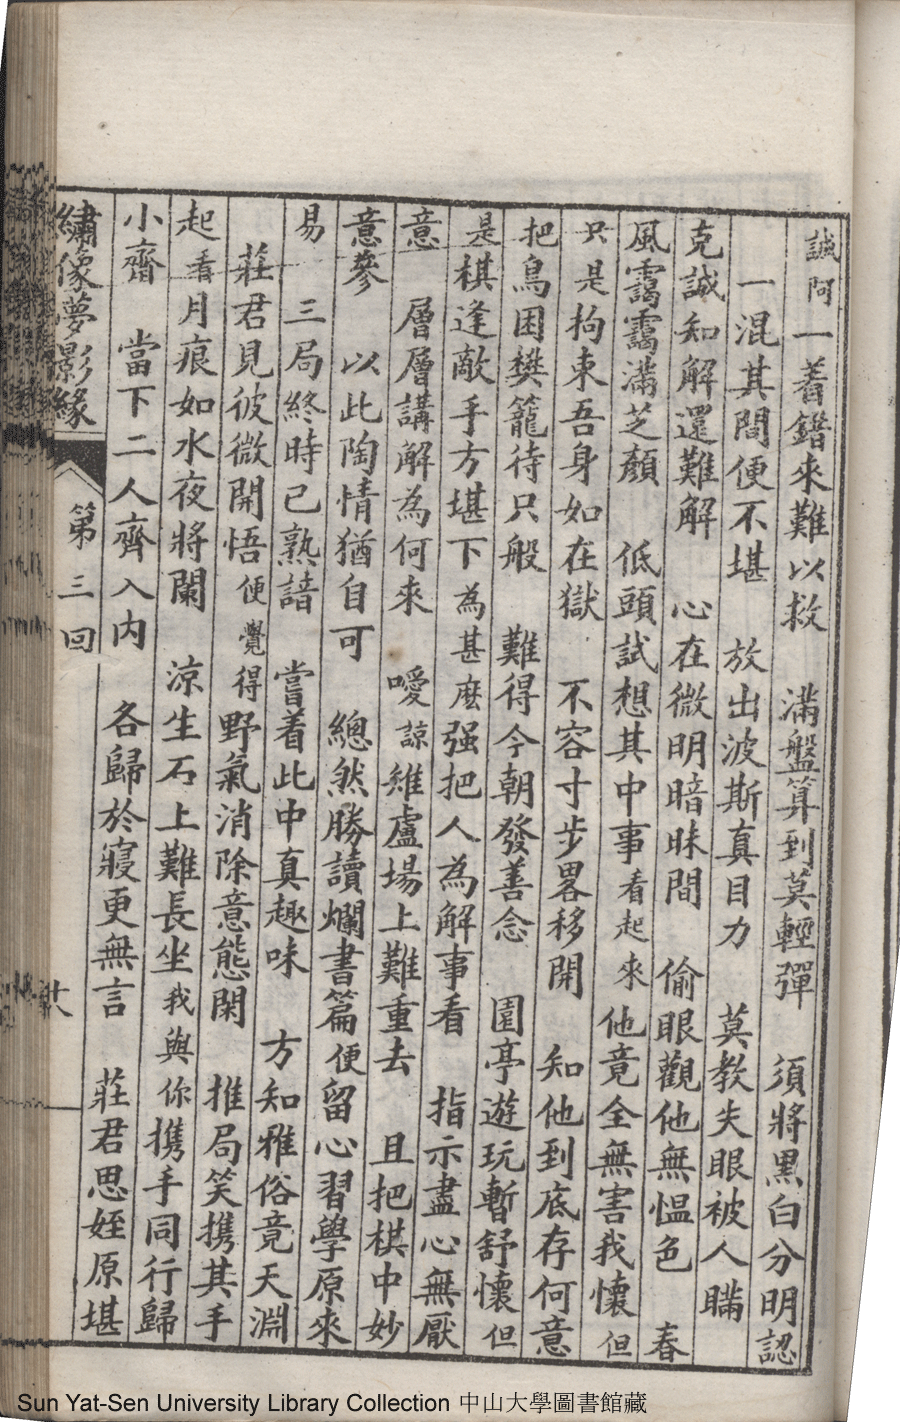 誠阿一着錯來難以救　滿盤算到莫輕彈　須將黑白分明認
一混其間便不堪　放出波斯真目力　莫教失眼被人瞞
克誠知解還難解　心在微明暗昧間　偷眼觀他無愠色　春
風靄靄滿芝顏　低頭試想其中事看起來他竟全無害我懷但
只是拘束吾身如在獄　不容寸步畧移開　知他到底存何意
把鳥困樊籠待只般　難得今朝發善念　園亭遊玩暫舒懷但
是棋逢敵手方堪下為甚麽强把人為解事看　指示盡心無厭
意　層層講解為何來　噯諒雉盧場上難重去　且把棋中妙
意參　以此陶情猶自可　總然勝讀爛書篇便留心習學原來
易　三局終時已熟諳　嘗着此中真趣味　方知雅俗竟天淵
莊君見彼微開悟便覺得野氣消除意態閑　推局笑攜其手
起看月痕如水夜將闌　涼生石上難長坐我與你携手同行歸
小齋　當下二人齊入內　各歸於寢更無言　莊君思姪原堪
繡像夢影緣　第三回　廿八
Sun Yat-Sen University Library Collection 中山大學圖書館藏